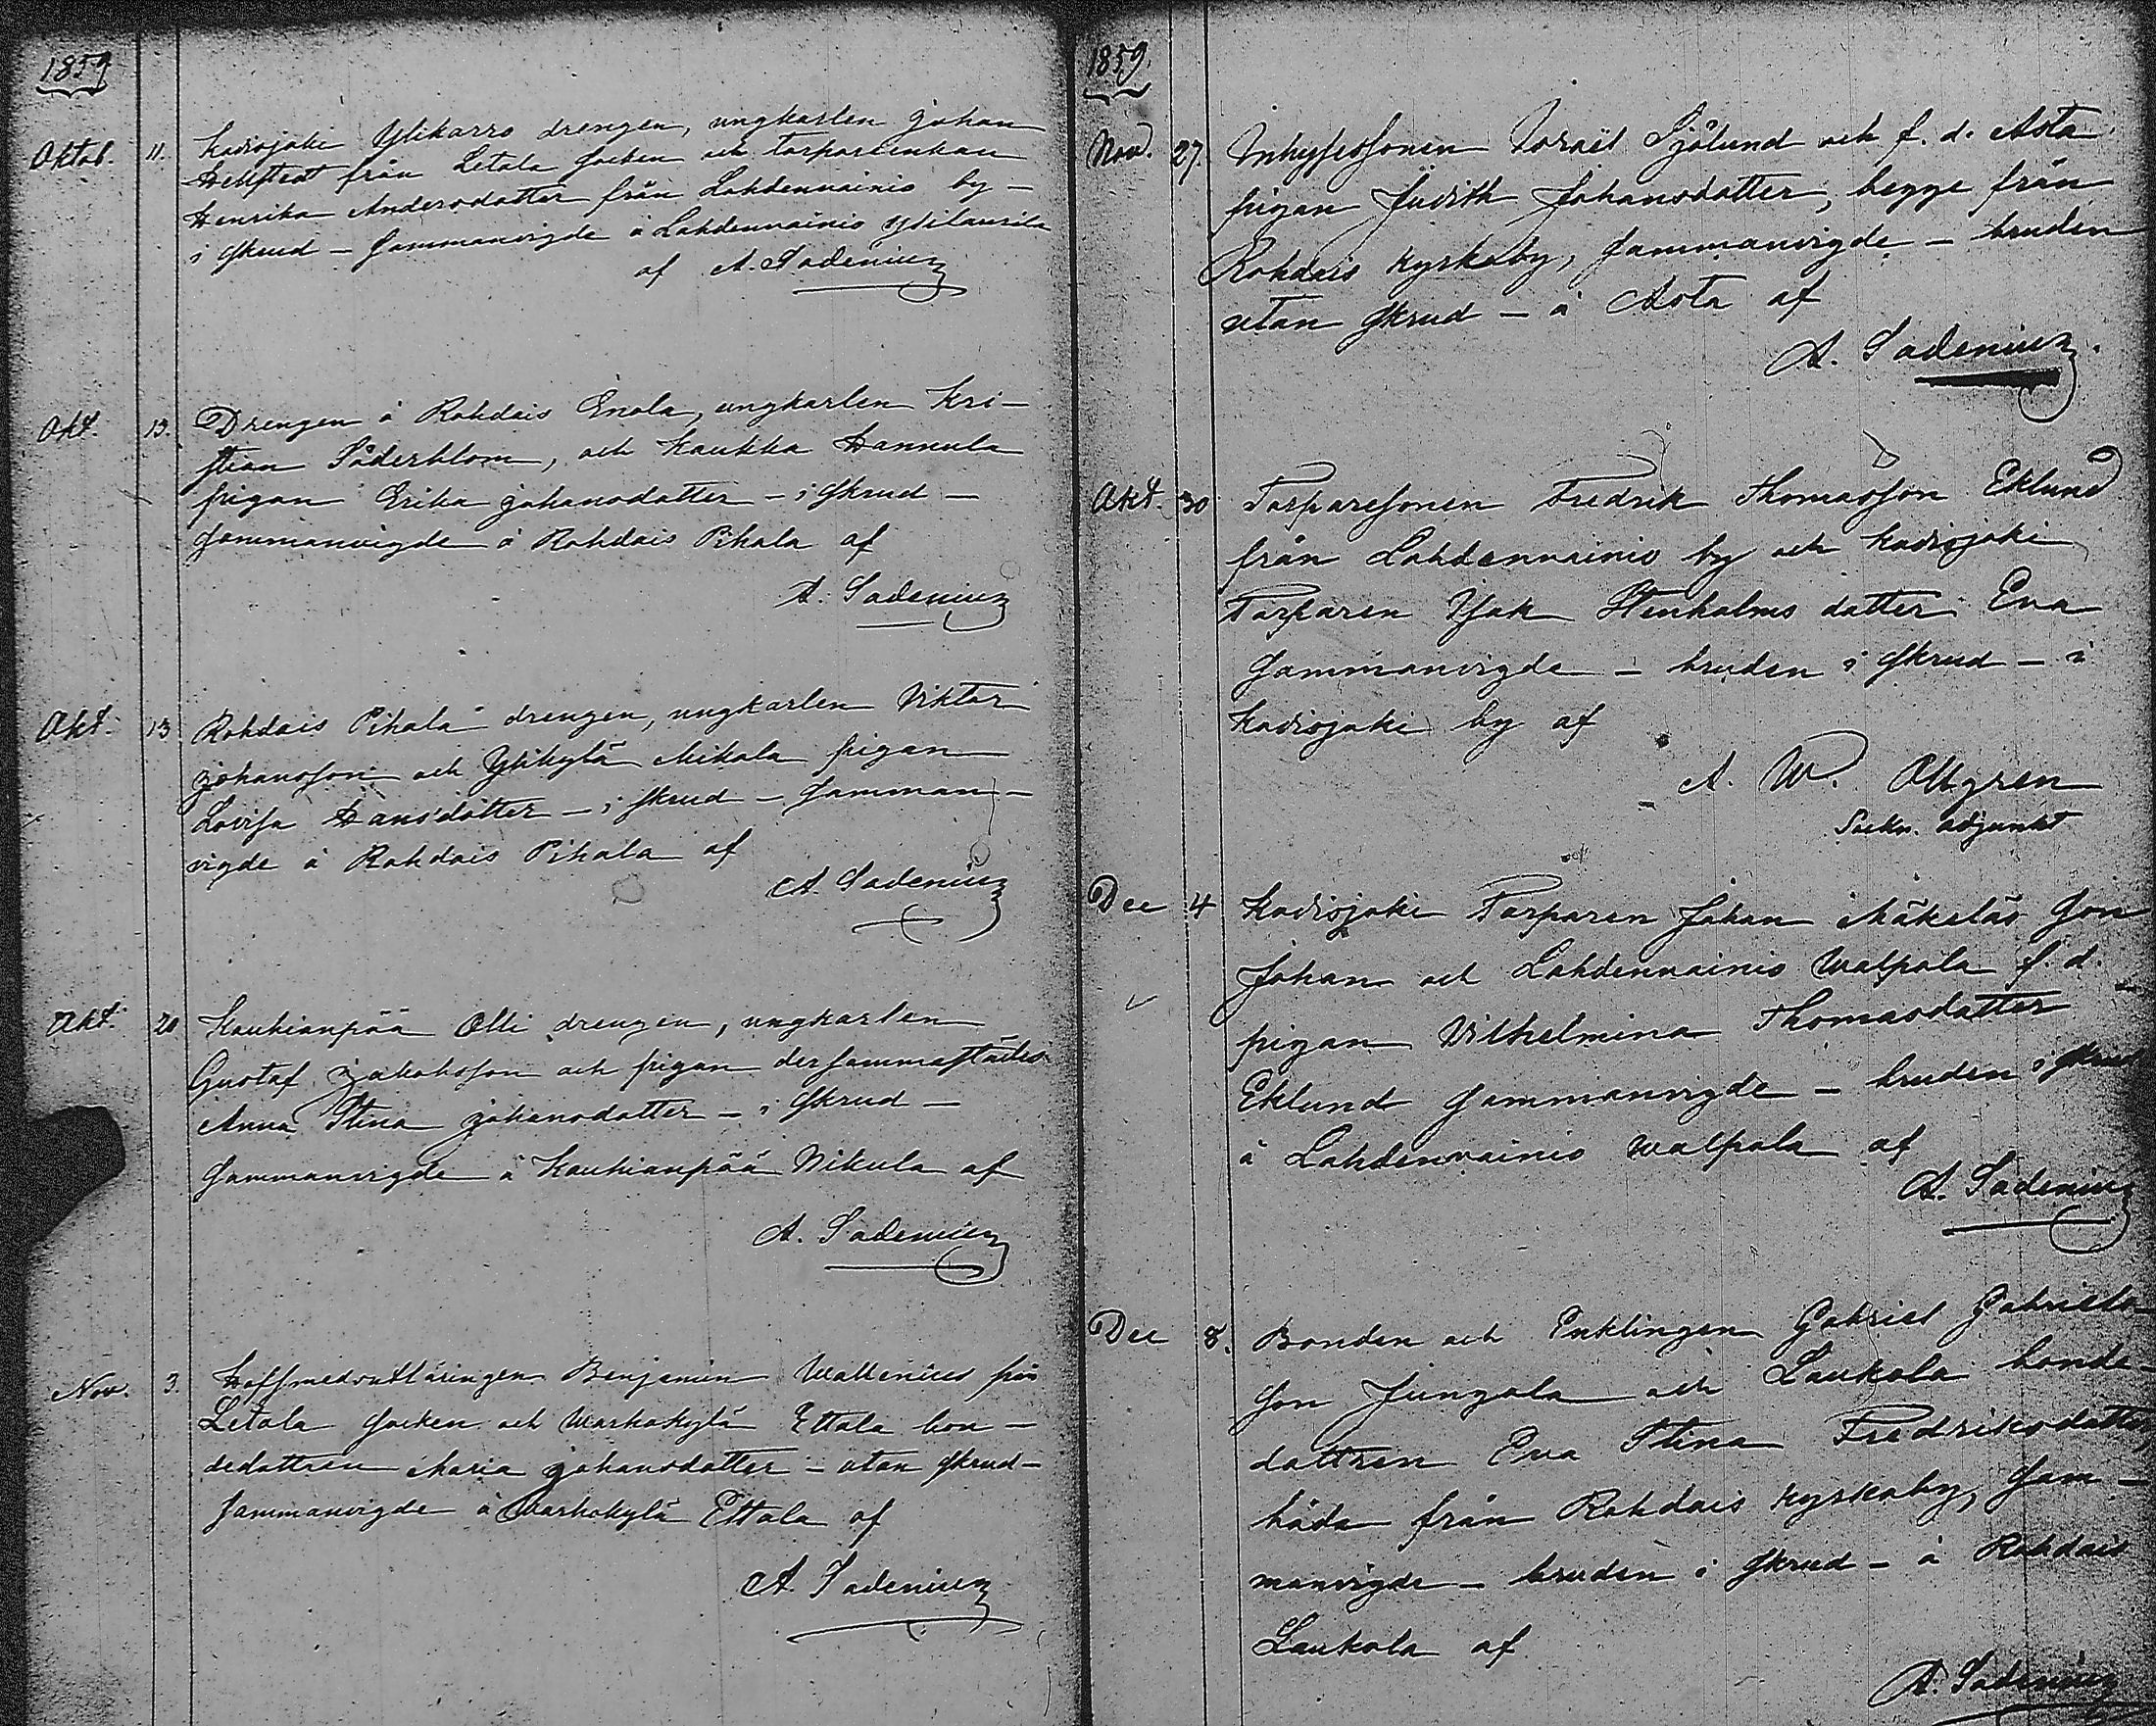 1859
Oktob. 11. Kadisjoki Ylikarro drengen, ungkarlen Johan
Hellstedt från Letala socken och torparenkan
Henrika Andersdotter från Lahdenvainio by –
i skrud – sammanvigde å Lahdenvainio Ylilaurila
af A. Sadenius
Okt. 13. Drengen å Rohdais Enola, ungkarlen Kri-
stian Söderblom, och Kaukka Hannula
pigan Erika Johansdotter – i skrud –
sammanvigde å Rohdais Pihala af
A. Sadenius
Okt. 13 Rohdais Pihala drengen, ungkarlen Viktor
Johansson och Ylikylä Mikola pigan
Lovisa Hansdotter – i skrud – samman-
vigde å Rohdais Pihala af
A. Sadenius
Okt. 20. Kauhianpää Olli drengen, ungkarlen
Gustaf Jakobsson och pigan dersammastädes
Anna Stina Johansdotter – i skrud –
sammanvigde å Kauhianpää Nikula af
A. Sadenius
Nov. 3. Hofsmedsutläringen Benjamin Wallenius från
Letala socken och Warhokylä Ettala bon-
dedottren Maria Johansdotter – utan skrud –
sammanvigde å Warhokylä Ettala af
A. Sadenius
1859.
Nov. 27. Inhysessonen Israël Sjölund och f. d. Asta
pigan Judith Johansdotter, begge från
Rohdais kyrkoby, sammanvigde – bruden
utan skrud – å Asta af
A. Sadenius.
Okt. 30 Torparesonen Fredrik Thomasson Eklund
från Lahdenvainio by och Kadisjoki
Torparen Isak Stenholms dotter Eva
sammanvigde – bruden i skrud – i
Kadisjoki by af
A. W. Ollgren
Sockn. adjunkt
Dec 4 Kadisjoki Torparen Johan Mäkeläs son
Johan och Lahdenvainio Walpola f. d.
pigan Vilhelmina Thomasdotter
Eklund sammanvigde – bruden i skrud
å Lahdenvainio Walpola af
A. Sadenius
Dec 8. Bonden och Enklingen Gabriel Gabriels-
son Jungola och Laukola bonde-
dottren Eva Stina Fredriksdotter,
båda från Rohdais kyrkoby, sam-
manvigde – bruden i skrud – å Rohdais
Laukola af
A. Sadenius